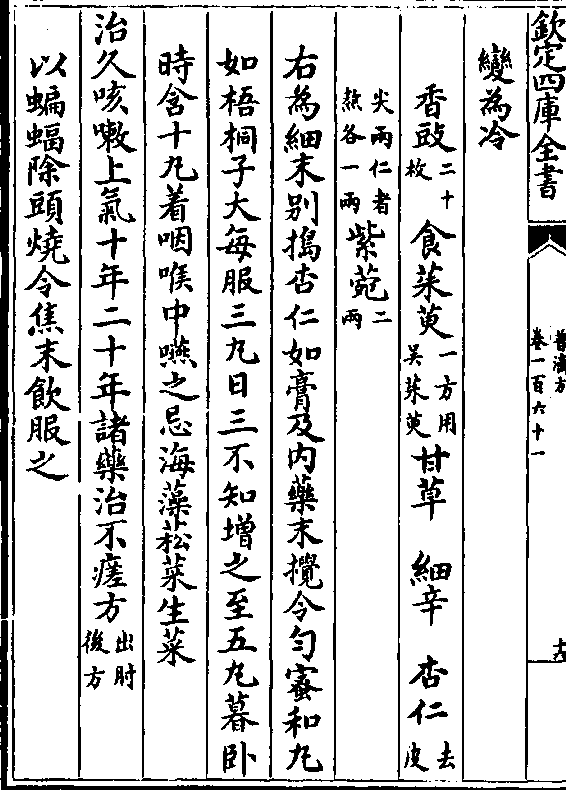 欽定四庫全書
普濟方
卷一百六十一
十六
變為冷
香豉二十枚 食茱萸一方用吳茱萸 甘草 細辛 杏仁去皮
尖兩仁者熬各一兩 紫菀二兩
右為細末别搗杏仁如膏及内藥末攪令勻蜜和丸
如梧桐子大每服三丸日三不知增之至五丸暮卧
時含十丸着咽喉中嚥之忌海藻菘菜生菜
治久咳嗽上氣十年二十年諸藥治不瘥方出肘後方
以蝙蝠除頭燒令焦末飲服之